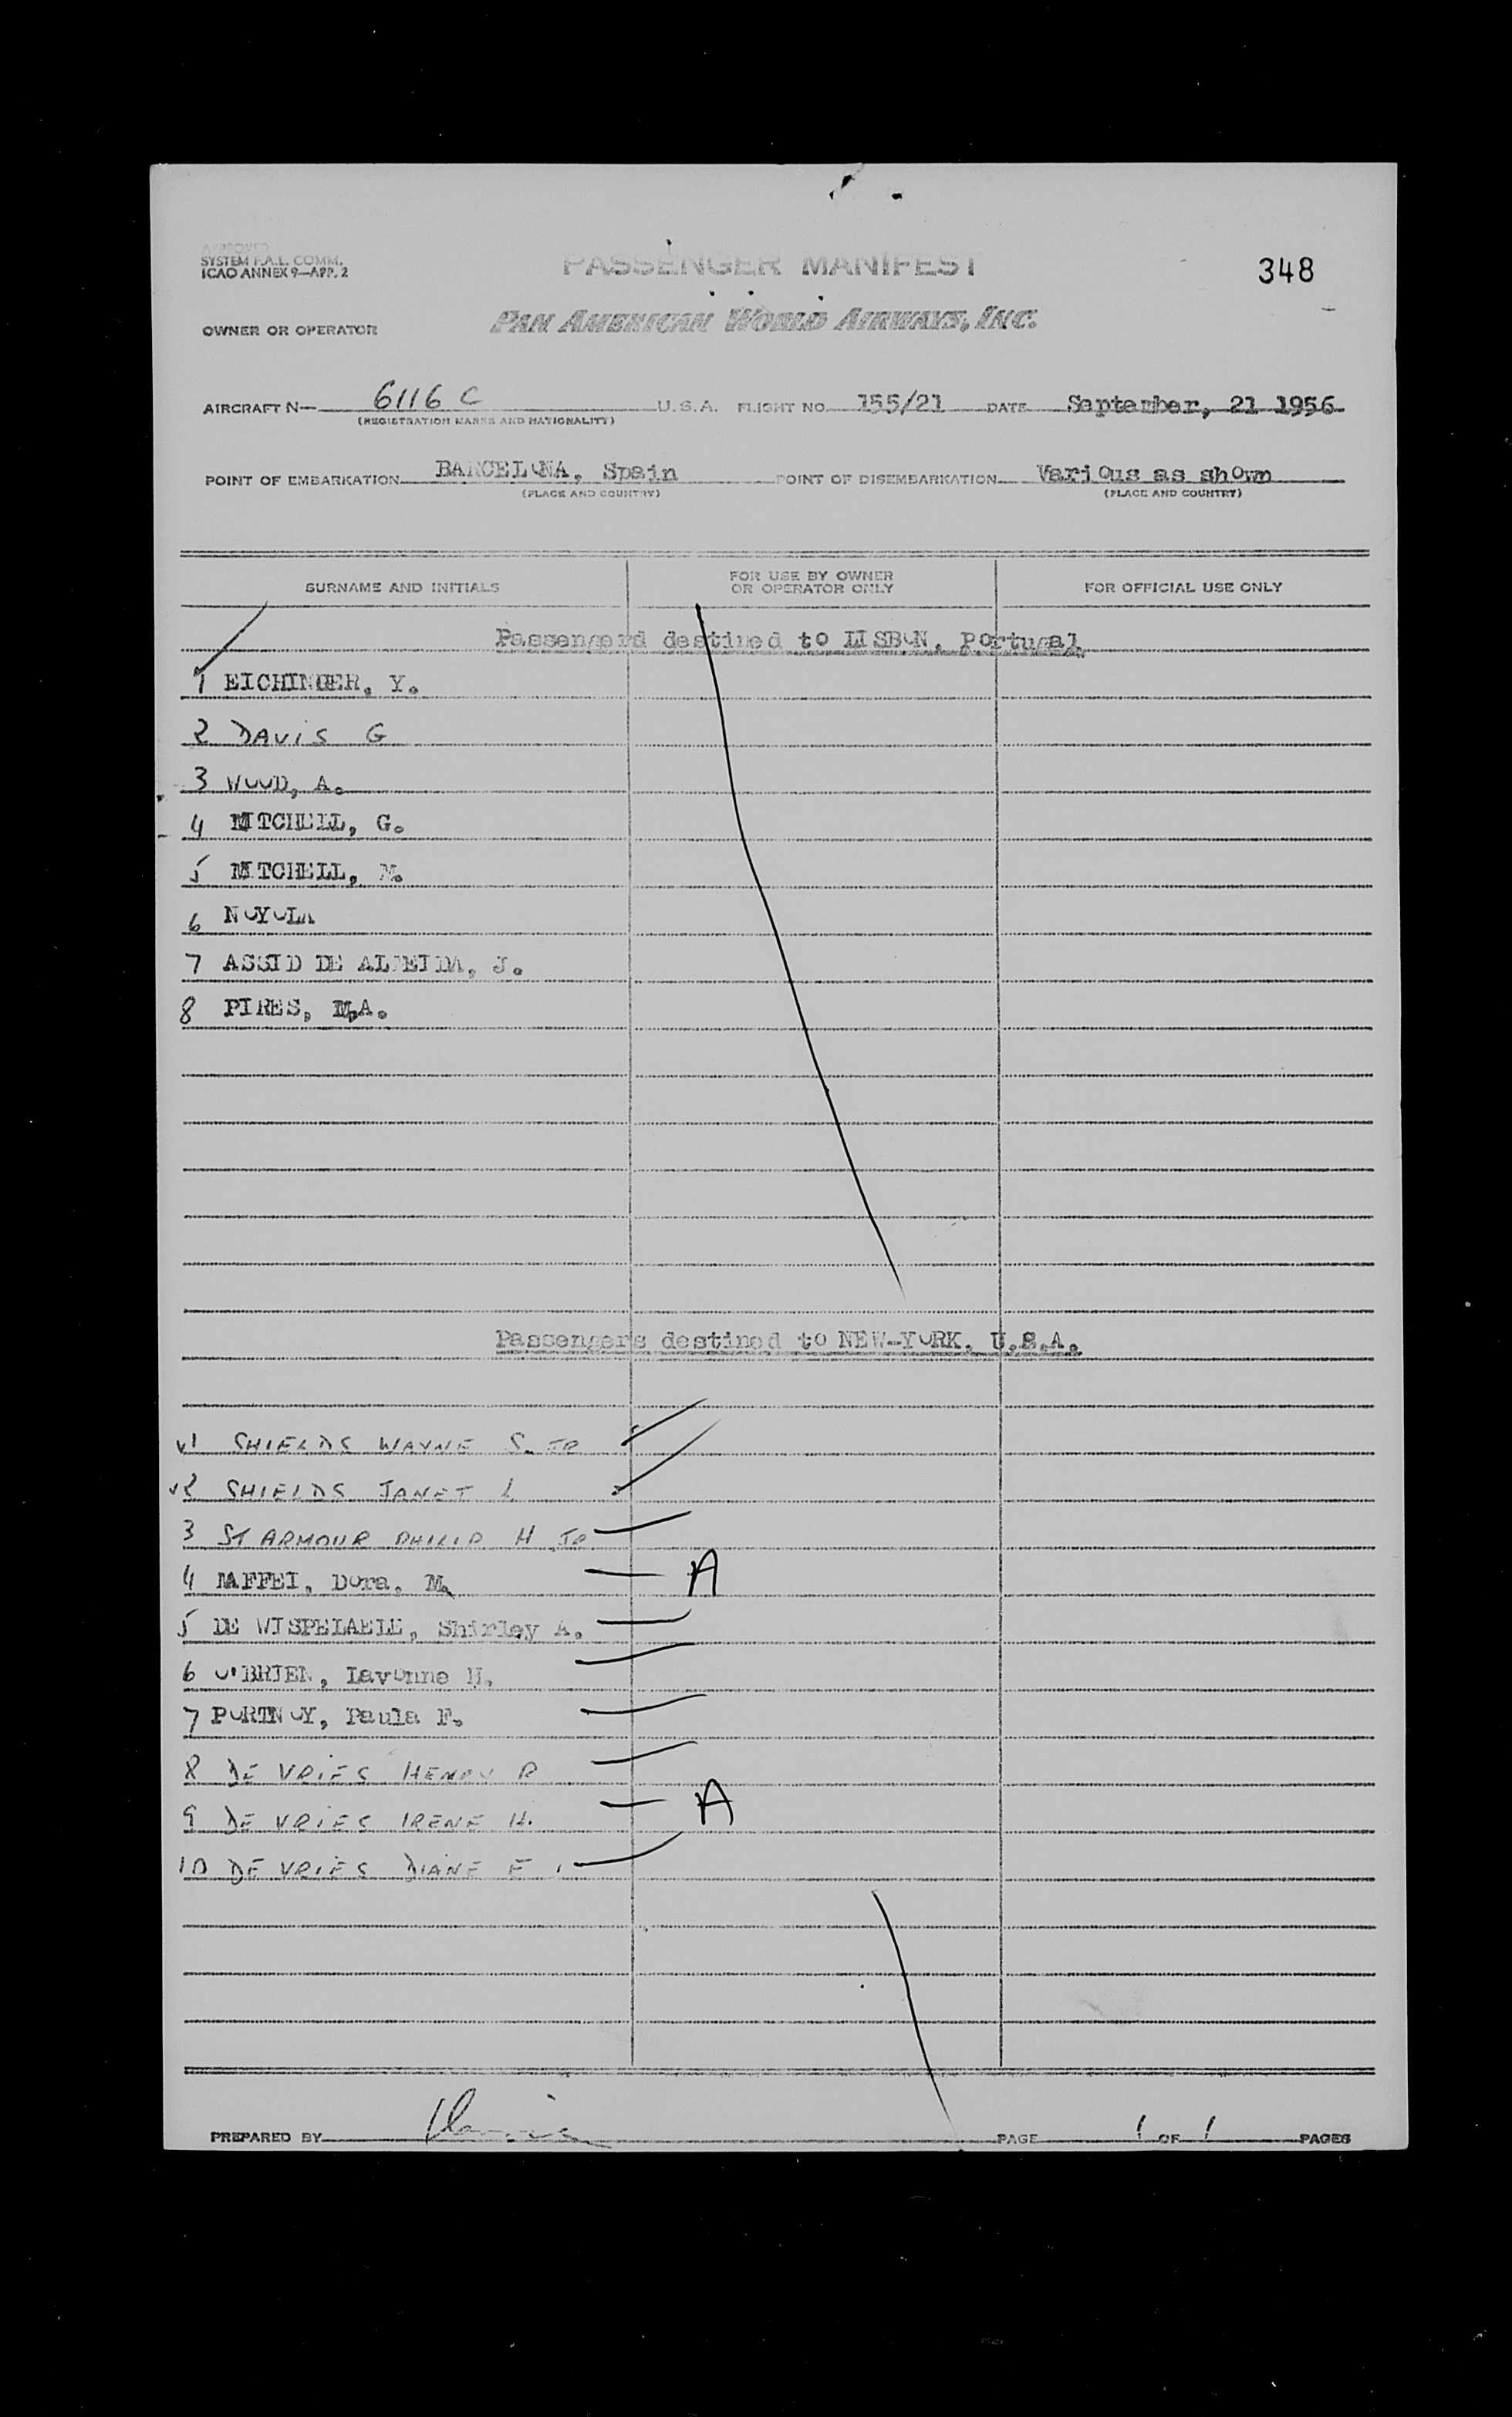 APPROVED
SYSTEM F.A.L. COMM.
ICAO ANNEX 9—APP. 2
PASSENGER MANIFEST
348
OWNER OR OPERATOR PAN AMERICAN WORLD AIRWAYS, INC.
AIRCRAFT N— 6116 C U.S.A. FLIGHT NO. 155/21 DATE September, 21 1956
(REGISTRATION MARKS AND NATIONALITY)
POINT OF EMBARKATION BARCELONA, Spain POINT OF DISEMBARKATION Various as shown
(PLACE AND COUNTRY) (PLACE AND COUNTRY)
SURNAME AND INITIALS FOR USE BY OWNER OR OPERATOR ONLY FOR OFFICIAL USE ONLY
Passengers destined to LISBON, Portugal
1 EICHINGER, Y.
2 DAVIS G
3 WOOD, A.
4 MITCHELL, G.
5 MITCHELL, M.
6 NOYOLA
7 ASSID DE ALMEIDA, J.
8 PIRES, M.A.
Passengers destined to NEW-YORK, U.S.A.
1 SHIELDS WAYNE S. JR
2 SHIELDS JANET L
3 ST ARMOUR PHILIP H JR
4 MAFFEI, Dora, M. A
5 DE WISPELAELE, Shirley A.
6 O'BRIEN, Lavonne H.
7 PORTNOY, Paula F.
8 DE VRIES HENRY R
9 DE VRIES IRENE H. A
10 DE VRIES DIANE E
PREPARED BY PAGE 1 OF 1 PAGES